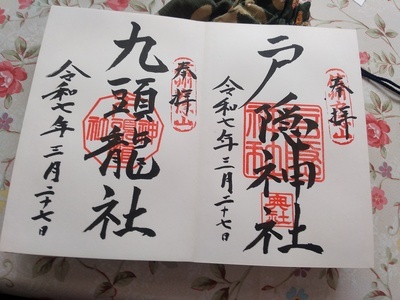 奉拝
戸隠神社
令和七年三月二十七日
奉拝
九頭龍社
令和七年三月二十七日